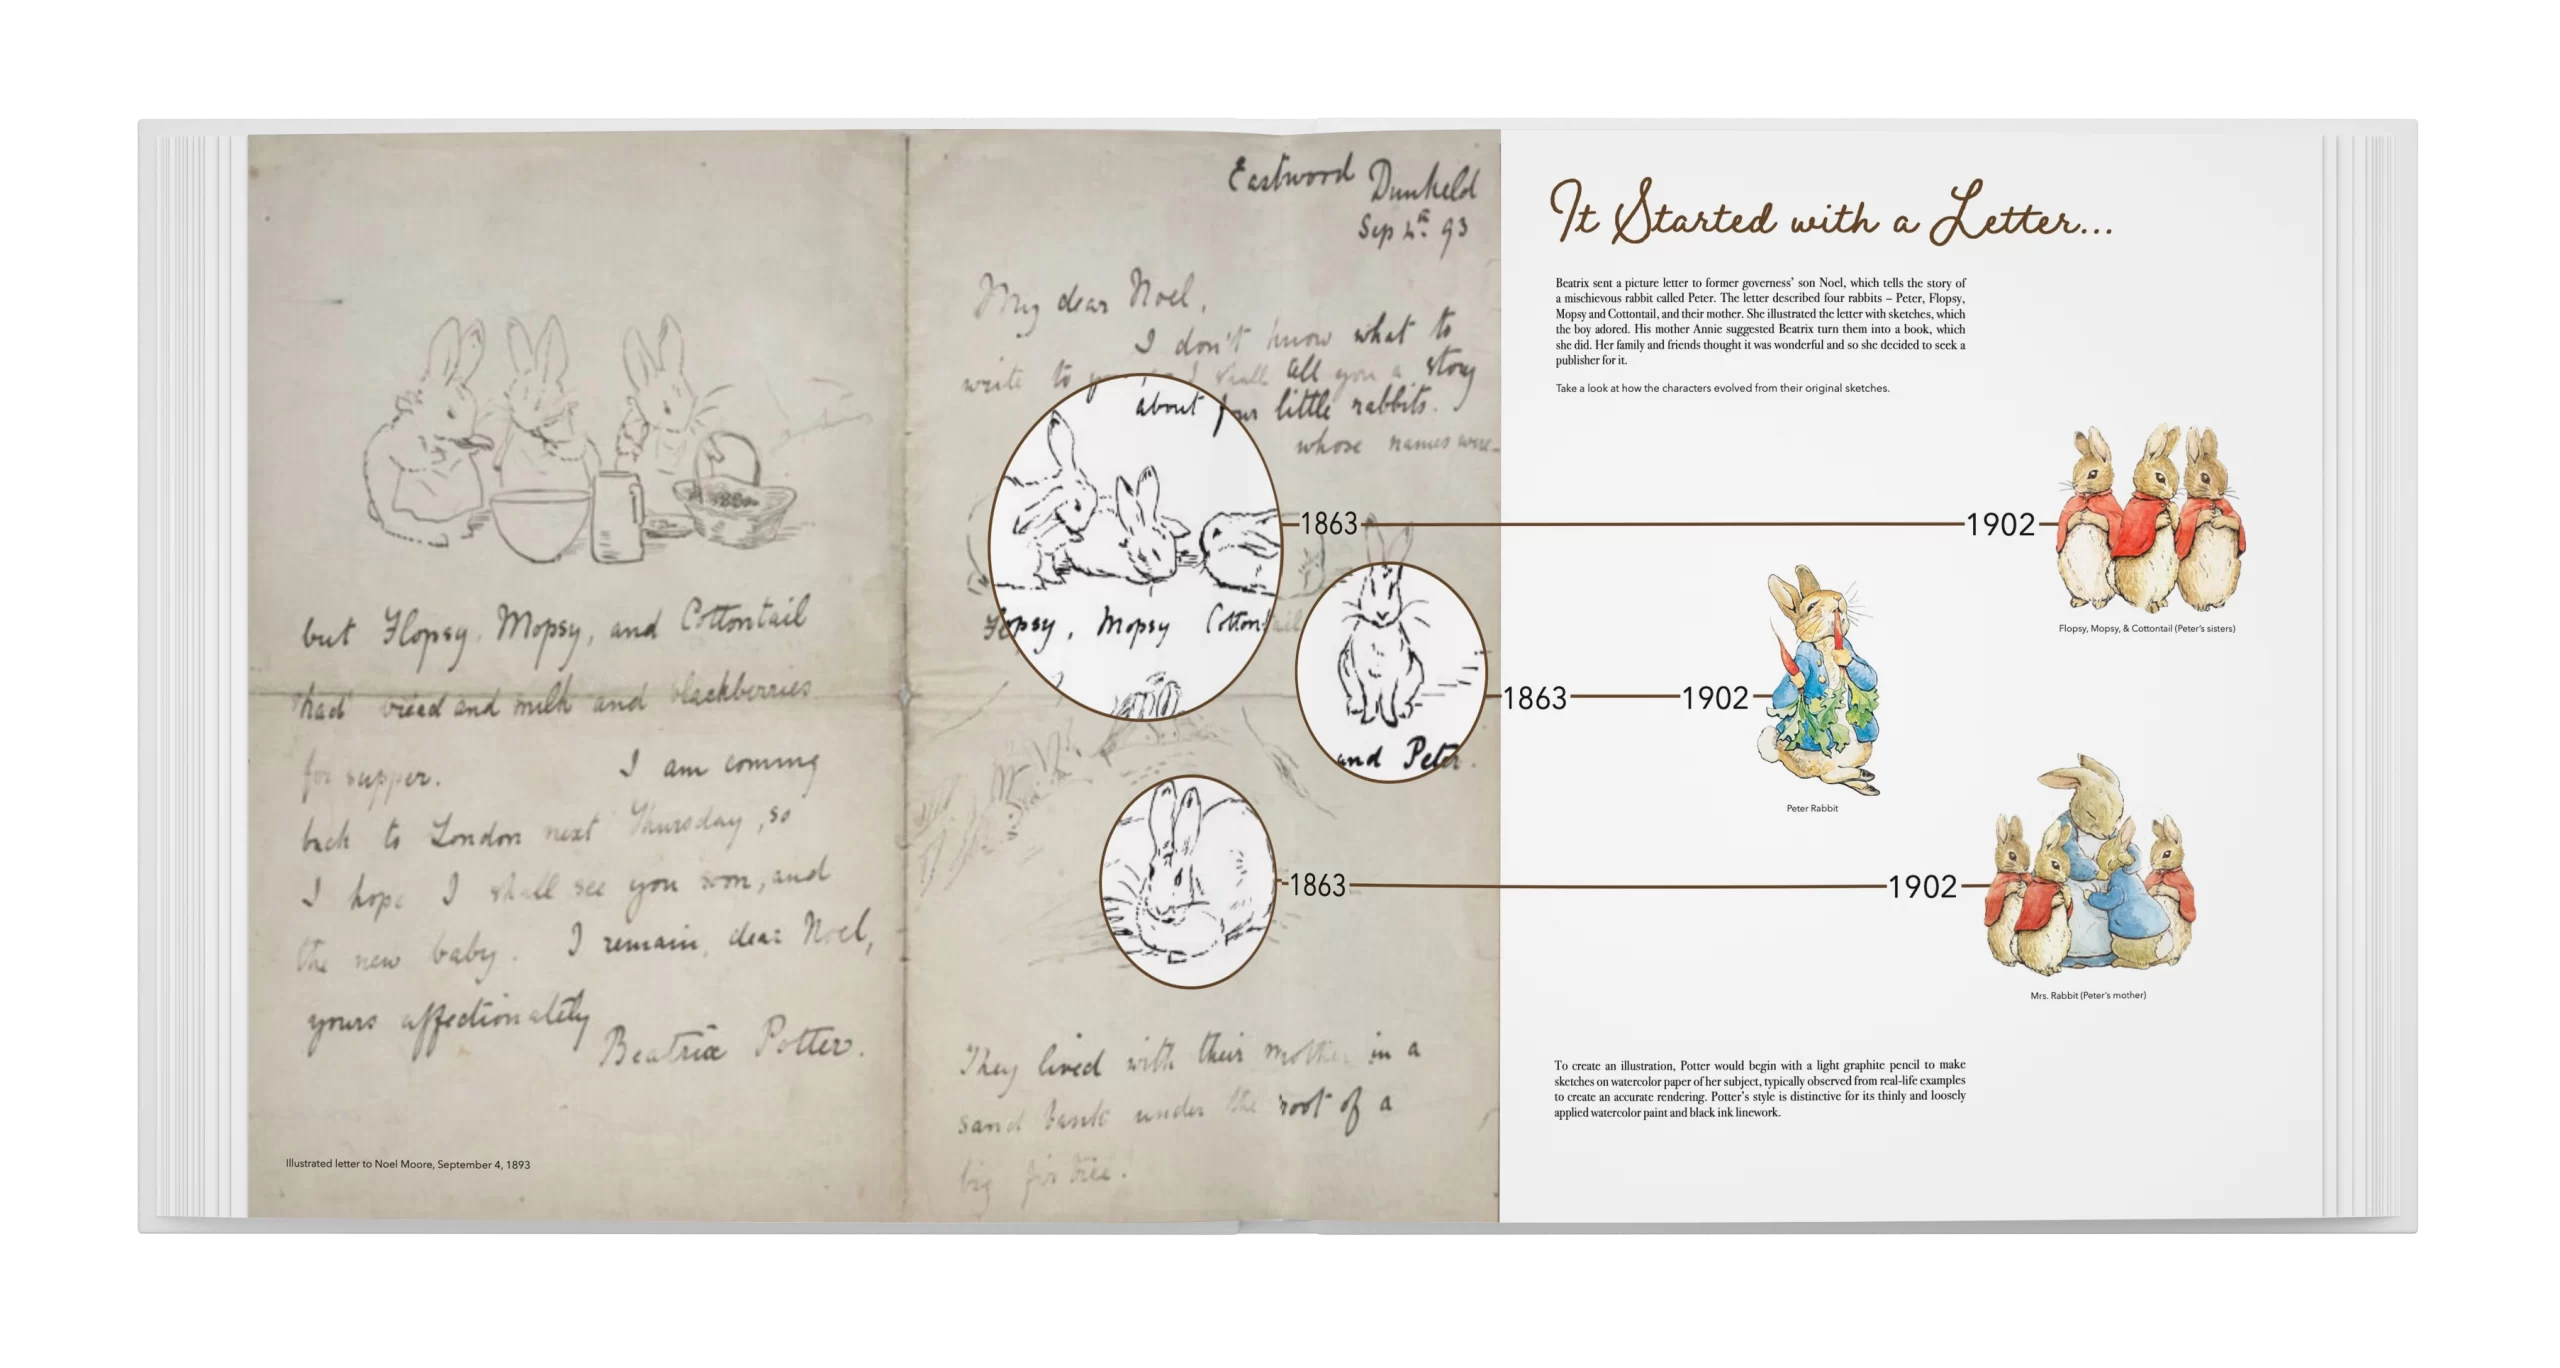 but Flopsy, Mopsy, and Cottontail
had bread and milk and blackberries
for supper. I am coming
back to London next Thursday, so
I hope I shall see you soon, and
the new baby. I remain, dear Noel,
yours affectionately
Beatrix Potter.
Illustrated letter to Noel Moore, September 4, 1893
Eastwood Dunkeld
Sep 4th 93
My dear Noel,
I don't know what to
write to you I shall all you a story
about four little rabbits.
whose names were-
1863
Flopsy, Mopsy Cottontail
and Peter.
1863
1863
They lived with their mother in a
sand bank under the root of a
big fir tree.
It Started with a Letter...
Beatrix sent a picture letter to former governess' son Noel, which tells the story of
a mischievous rabbit called Peter. The letter described four rabbits – Peter, Flopsy,
Mopsy and Cottontail, and their mother. She illustrated the letter with sketches, which
the boy adored. His mother Annie suggested Beatrix turn them into a book, which
she did. Her family and friends thought it was wonderful and so she decided to seek a
publisher for it.
Take a look at how the characters evolved from their original sketches.
1902
Flopsy, Mopsy, & Cottontail (Peter's sisters)
1902
Peter Rabbit
1902
Mrs. Rabbit (Peter's mother)
To create an illustration, Potter would begin with a light graphite pencil to make
sketches on watercolor paper of her subject, typically observed from real-life examples
to create an accurate rendering. Potter's style is distinctive for its thinly and loosely
applied watercolor paint and black ink linework.